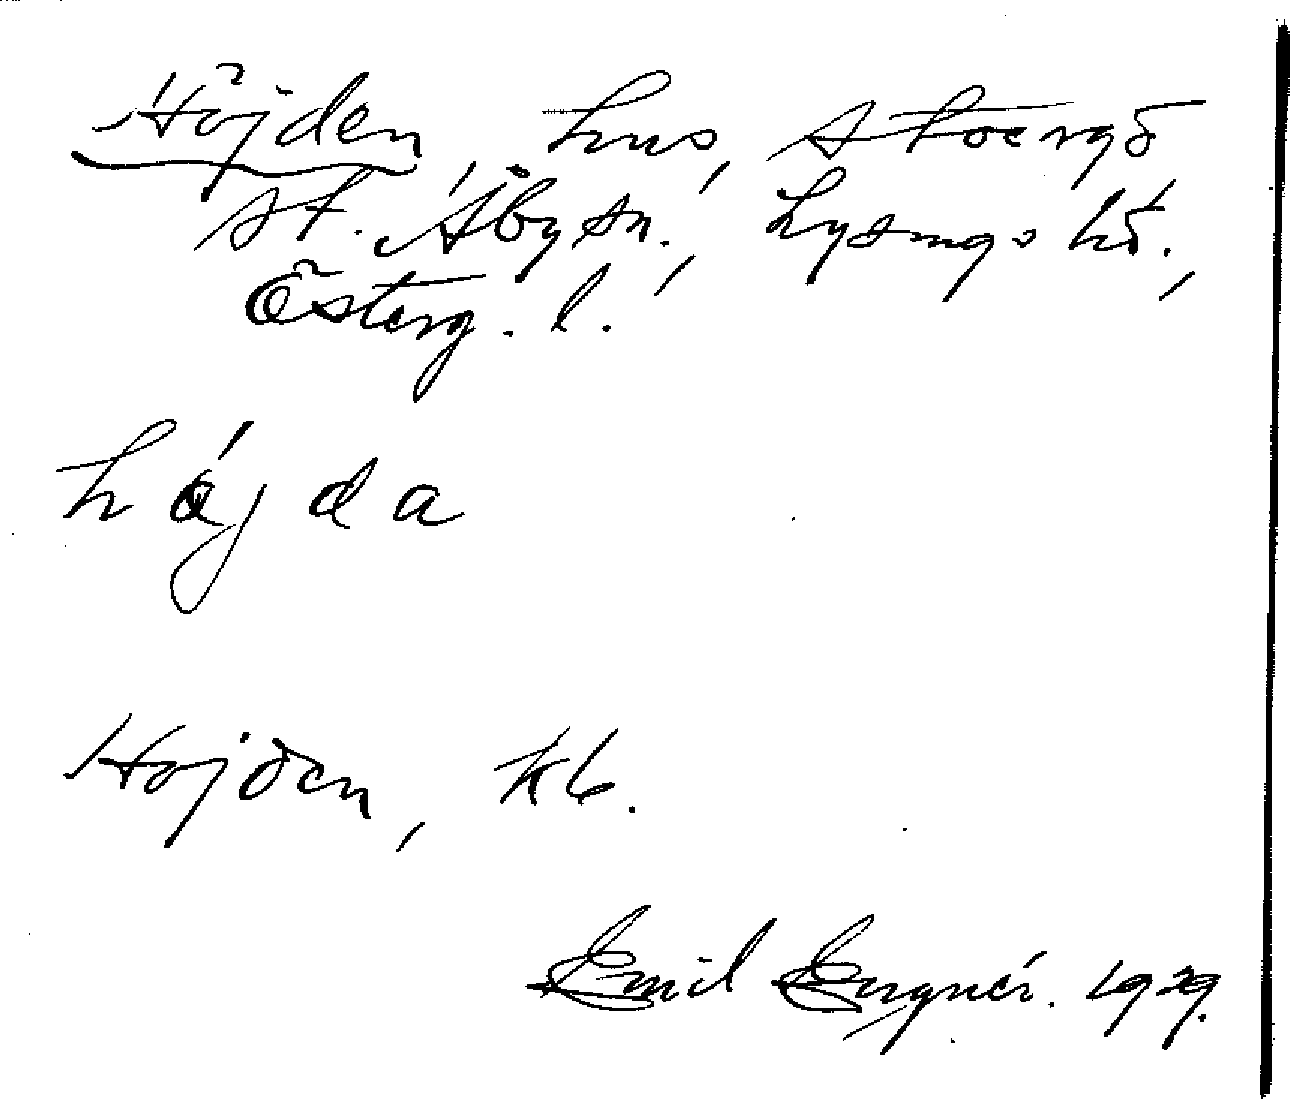 Höjden hus, Stoergö
st. Åby sn., Lysings hd.,
Österg. l.
h ǿ j d a
Höjden, kb.
Emil Ergnér. 1929.